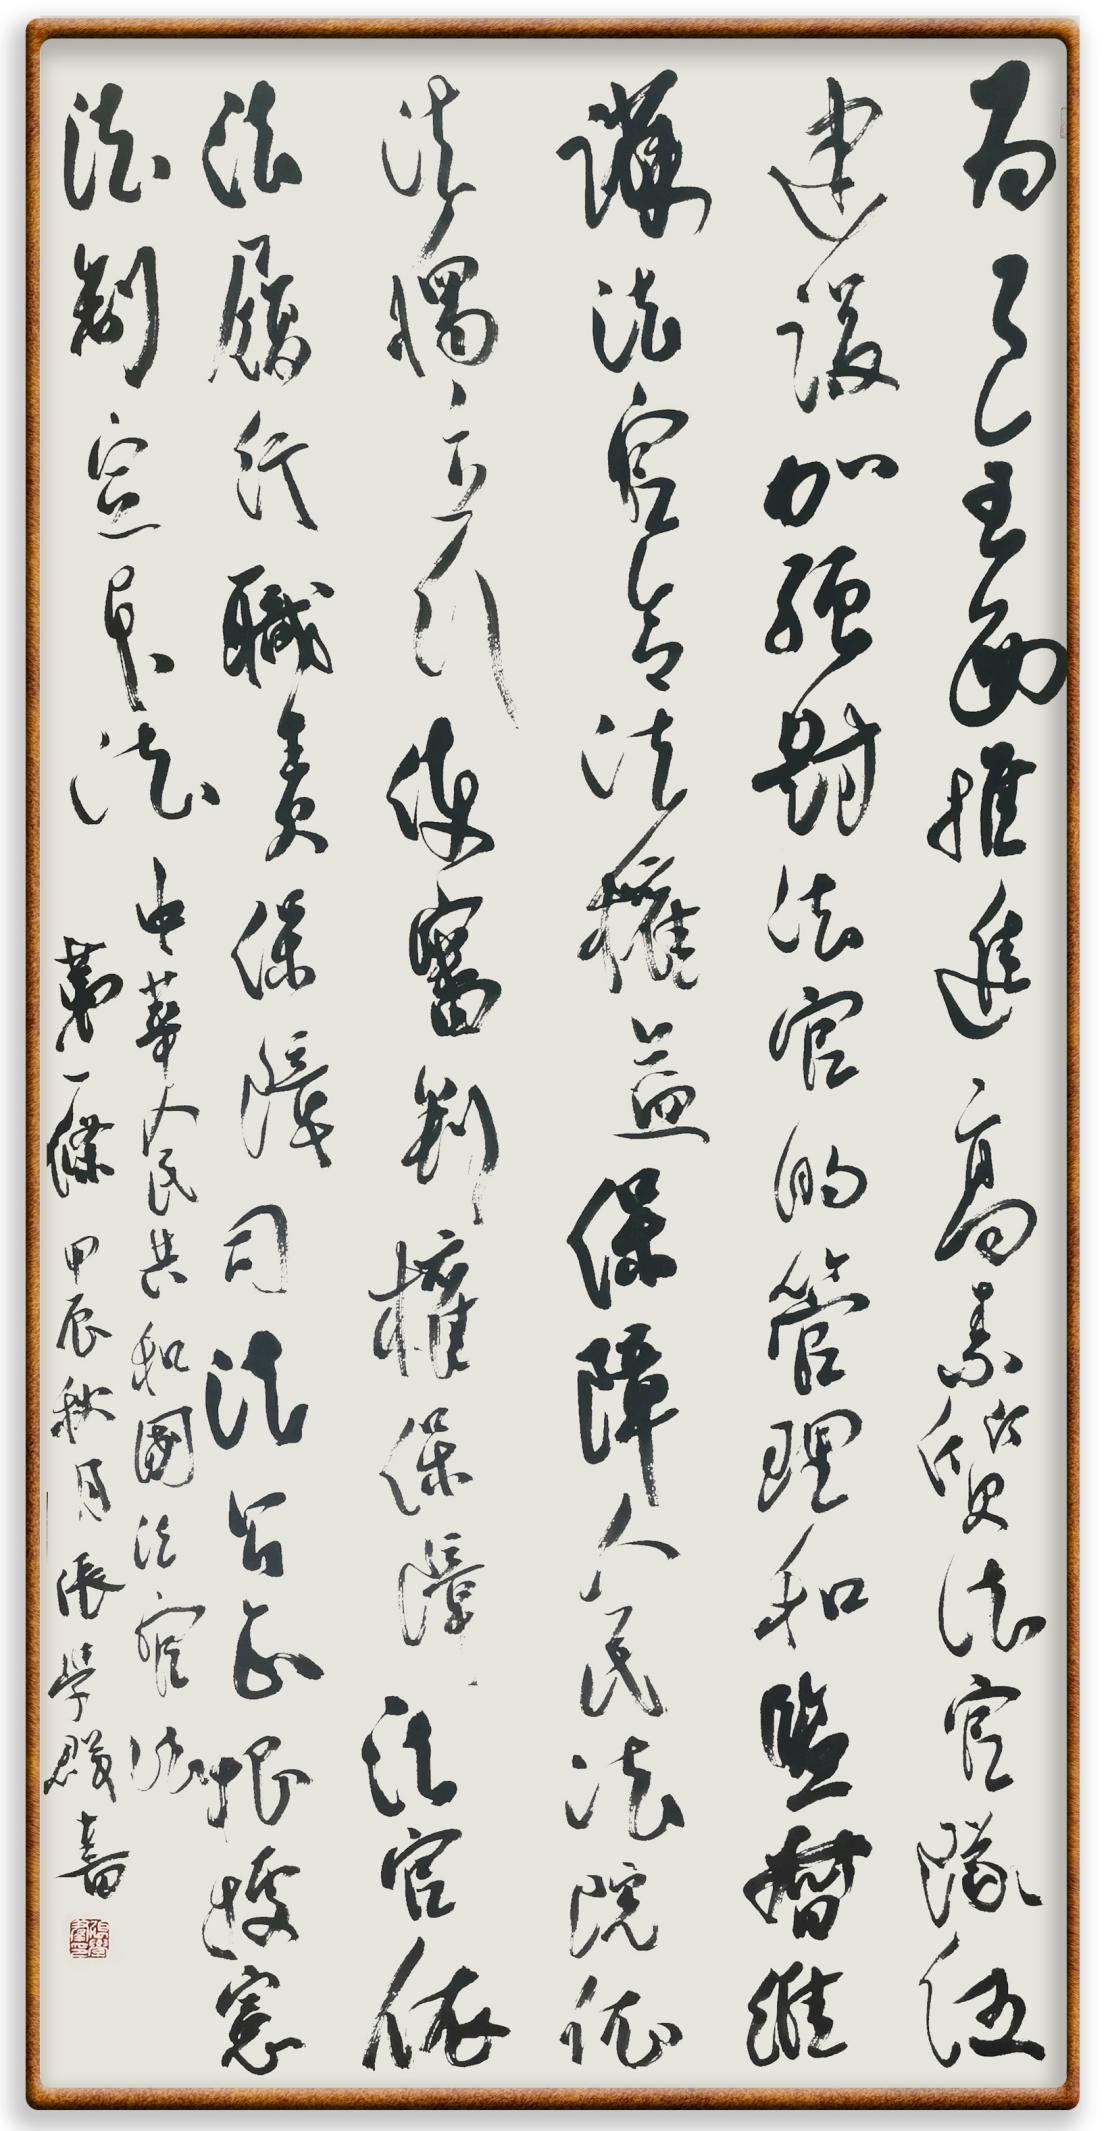 為了全面推進高素質法官隊伍
建設加強對法官的管理和監督維
護法官合法權益保障人民法院依
法獨立行使審判權保障法官依
法履行職責保障司法公正根據憲
法制定本法
中華人民共和國法官法
第一條 甲辰秋月 張學群書